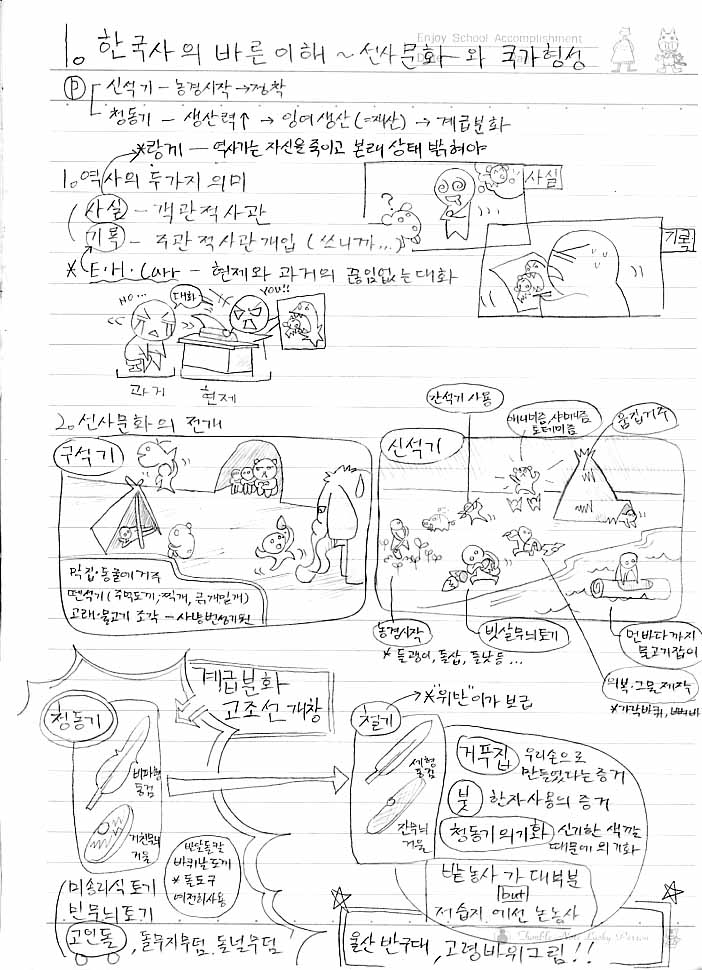 Enjoy School Accomplishment
1. 한국사의 바른이해 ~ 선사문화와 국가형성
P 신석기 - 농경시작 → 정착
청동기 - 생산력↑ → 잉여생산(=재산) → 계급분화
*랑케 - 역사가는 자신을 죽이고 본래 상태 밝혀야
1. 역사의 두가지 의미
사실 - 객관적사관
기록 - 주관적사관개입 (쓰니까...)
사실
?
기록
* E·H·Carr - 현재와 과거의 끊임없는 대화
NO...
대화
YOU!!
과거
현재
2. 선사문화의 전개
구석기
막집·동굴에 거주
뗀석기(주먹도끼, 찍개, 긁개, 밀개)
고래·물고기 조각 - 사냥번성기원
신석기
간석기 사용
애니미즘, 샤머니즘
토테미즘
움집거주
농경시작
* 돌괭이, 돌삽, 돌낫 등...
빗살무늬토기
먼바다까지
물고기잡이
의복·그물 제작
*가락바퀴, 뼈바늘
계급분화
고조선 개창
청동기
비파형
동검
거친무늬
거울
반달돌칼
바퀴날도끼
* 돌도구
여전히사용
미송리식 토기
민무늬토기
고인돌, 돌무지무덤, 돌널무덤
철기
→ *"위만"이가 보급
세형
동검
잔무늬
거울
거푸집 우리손으로
만들었다는 증거
붓 한자사용의 증거
청동기 의기화 신기한 색깔
때문에 의기화
밭농사가 대부분
but
저습지에선 논농사
울산 반구대, 고령바위그림!!